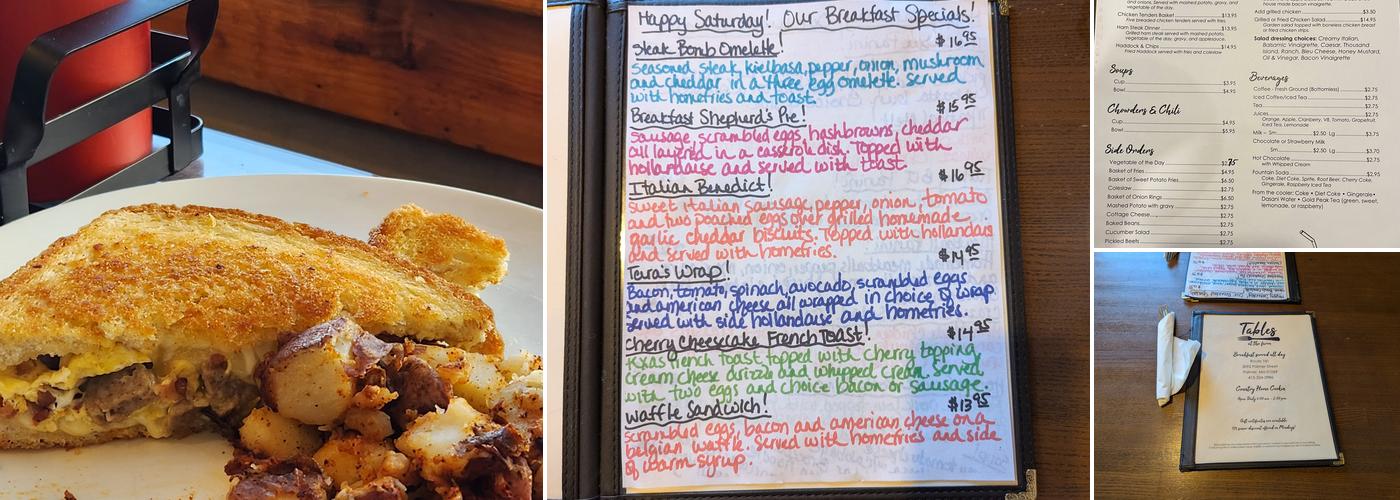 Happy Saturday! Our Breakfast Specials!
Steak Bomb Omelette! $16.95
Seasoned steak, kielbasa, pepper, onion, mushroom
and cheddar in a three egg omelette. served
with homefries and toast.
Breakfast Shepherd's Pie! $15.95
sausage, scrambled eggs, hashbrowns, cheddar
all layered in a casserole dish. Topped with
hollandaise and served with toast.
Italian Benedict! $16.95
sweet italian sausage, pepper, onion, tomato
and two poached eggs over grilled homemade
garlic cheddar biscuits. Topped with hollandaise
and served with homefries.
Tera's Wrap! $14.95
Bacon, tomato, spinach, avocado, scrambled eggs
and american cheese all wrapped in choice of wrap
served with side hollandaise and homefries.
Cherry Cheesecake French Toast! $14.95
texas french toast topped with cherry topping,
cream cheese drizzle and whipped cream. Served
with two eggs and choice bacon or sausage.
Waffle Sandwich! $13.95
scrambled eggs, bacon and american cheese on a
belgian waffle. Served with homefries and side
of warm syrup.
Chicken Tenders Basket $13.95
Five breaded chicken tenders served with fries.
Ham Steak Dinner $13.95
Grilled ham steak served with mashed potato,
vegetable of the day, gravy, and applesauce.
Haddock & Chips $14.95
Fried Haddock served with fries and coleslaw
Soups
Cup $3.95
Bowl $4.95
Chowders & Chili
Cup $4.95
Bowl $5.95
Side Orders
Vegetable of the Day $2.75
Basket of Fries $4.95
Basket of Sweet Potato Fries $6.50
Coleslaw $2.75
Basket of Onion Rings $6.50
Mashed Potato with gravy $2.75
Cottage Cheese $2.75
Baked Beans $2.75
Cucumber Salad $2.75
Pickled Beets $2.75
house made bacon vinaigrette.
Add grilled chicken $3.50
Grilled or Fried Chicken Salad $14.95
Garden salad topped with boneless chicken breast
Salad dressing choices: Creamy Italian,
Balsamic Vinaigrette, Caesar, Thousand
Island, Ranch, Bleu Cheese, Honey Mustard,
Oil & Vinegar, Bacon Vinaigrette
Beverages
Coffee - Fresh Ground (Bottomless) $2.75
Iced Coffee/Iced Tea $2.75
Tea $2.75
Juices $2.75
Orange, Apple, Cranberry, V8, Tomato, Grapefruit,
Iced Tea, Lemonade
Milk - Sm $2.50 Lg $3.70
Chocolate or Strawberry Milk
Sm $2.50 Lg $3.70
Hot Chocolate $2.75
with Whipped Cream
Fountain Soda $2.95
Coke, Diet Coke, Sprite, Root Beer, Cherry Coke,
Gingerale, Raspberry Iced Tea
From the cooler: Coke • Diet Coke • Gingerale •
Dasani Water • Gold Peak Tea (green, sweet,
lemonade, or raspberry)
Tables
at the farm
Breakfast served all day
Country Home Cookin